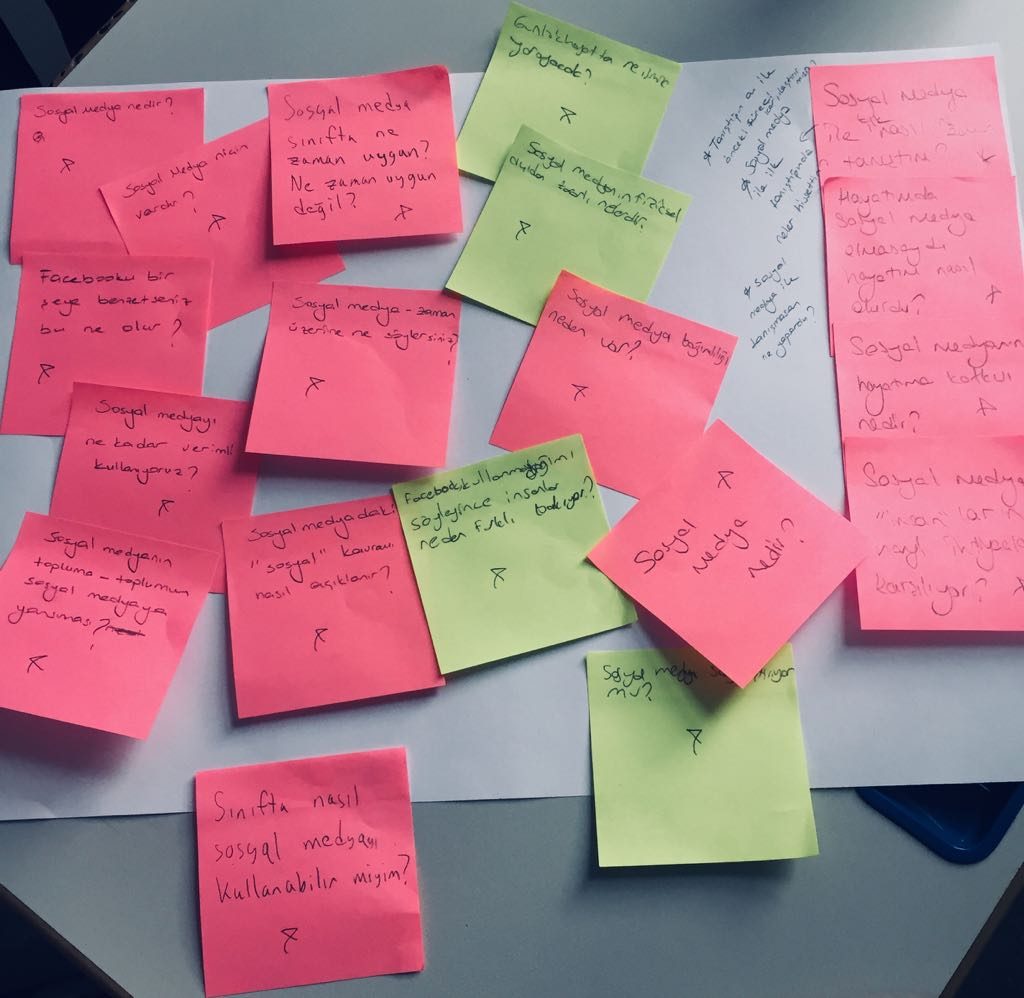 Sosyal medya nedir?
Sosyal Medya niçin
vardır?
Sosyal medya
sınıfta ne
zaman uygun?
Ne zaman uygun
değil?
Günlük hayatta ne işime
yarayacak?
Sosyal medyanın fiziksel
açıdan zararlı nelerdir?
* Tanıştıktan ilk
önceki süreci
* Sosyal medya
ile ilk
tanıştığımda
neler hissettim
* sosyal
medya ile
tanışmasam
ne yapardım?
Sosyal medya
ile "nasıl"
tanıştım?
Hayatımda
Sosyal medya
olmasaydı
hayatım nasıl
olurdu?
Sosyal medyanın
hayatıma katkısı
nedir?
Sosyal medya
"insan"ların
nasıl ihtiyaçla
karşılıyor?
Facebooku bir
şeye benzetseniz
bu ne olur?
Sosyal medya - zaman
üzerine ne söylersiniz?
Sosyal medya bağımlılığı
neden var?
Sosyal medyayı
ne kadar verimli
kullanıyoruz?
Sosyal medyanın
topluma - toplumun
sosyal medyaya
yansıması?
Sosyal medyadaki
"sosyal" kavramı
nasıl açıklanır?
Facebook kullanmadığımı
söyleyince insanlar
neden farklı bakıyor?
Sosyal
medya
nedir?
Sosyal medya
mu?
Sınıfta nasıl
sosyal medyayı
kullanabilir miyim?